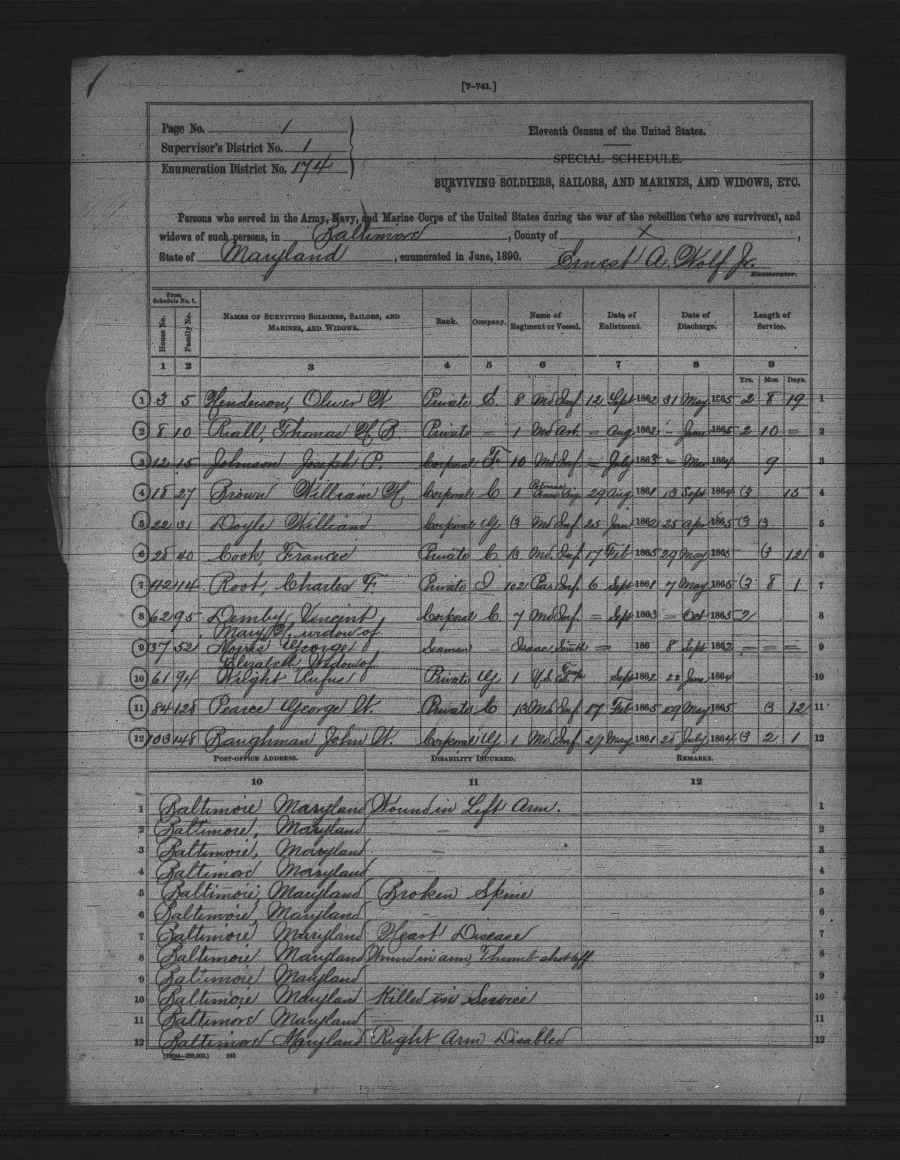 [7-741.]
Page No. 1
Supervisor's District No. 1
Enumeration District No. 174
Eleventh Census of the United States.
SPECIAL SCHEDULE.
SURVIVING SOLDIERS, SAILORS, AND MARINES, AND WIDOWS, ETC.
Persons who served in the Army, Navy, and Marine Corps of the United States during the war of the rebellion (who are survivors), and
widows of such persons, in Baltimore, County of x,
State of Maryland, enumerated in June, 1890. Ernest A. Wolf Jr.
Enumerator.
From Schedule No. 1.
House No. Family No. NAMES OF SURVIVING SOLDIERS, SAILORS, AND MARINES, AND WIDOWS. Rank. Company. Name of Regiment or Vessel. Date of Enlistment. Date of Discharge. Length of Service.
1 2 3 4 5 6 7 8 9
Yrs. Mos. Days.
1 3 5 Henderson, Oliver W Private C. 8 Md Inf 12 Sept 1862 31 May 1865 2 8 19 1
2 8 10 Riall, Thomas H. B. Private — 1 Md Art. — Aug 1862 — June 1865 2 10 — 2
3 12 15 Johnson Joseph P. Corporal F 10 Md Inf — July 1863 — Mar 1864 9 3
4 18 27 Brown William H. Corporal C 1 29 Aug 1861 13 Sept 1864 3 15 4
5 22 31 Doyle William Corporal G 3 Md Inf 25 Jan 1862 25 Apr 1865 3 3 5
6 28 40 Cook, Frances Private C 13 Md. Inf 17 Feb 1865 29 May 1865 3 12 6
7 42 114 Root, Charles F. Private I 102 Inf 6 Sept 1861 7 May 1865 3 8 1 7
8 62 95 Demby Vincent Corporal C. 7 Md Inf — Sept 1863 — Oct 1865 2 8
Mary widow of
9 37 52 Norris George Seaman — Isaac Smith — 186 8 Sept 1862 — — — 9
Elizabeth, Widow of
10 61 94 Wright Rufus Private G 1 U.S. Sept 1862 22 June 1864 10
11 84 128 Pearce George W. Private C 13 Md Inf 17 Feb 1865 29 May 1865 3 12 11
12 103 148 Baughman John W. Corporal G 1 Md Inf 27 May 1861 28 July 1864 3 2 1 12
POST-OFFICE ADDRESS. DISABILITY INCURRED. REMARKS.
10 11 12
1 Baltimore Maryland Wound in Left Arm. 1
2 Baltimore, Maryland — 2
3 Baltimore, Maryland — 3
4 Baltimore Maryland — 4
5 Baltimore, Maryland Broken Spine 5
6 Baltimore, Maryland — 6
7 Baltimore Maryland Heart Disease 7
8 Baltimore Maryland Wound in arm, Thumb shot off. 8
9 Baltimore Maryland 9
10 Baltimore Maryland Killed in Service 10
11 Baltimore Maryland — 11
12 Baltimore Maryland Right Arm Disabled 12